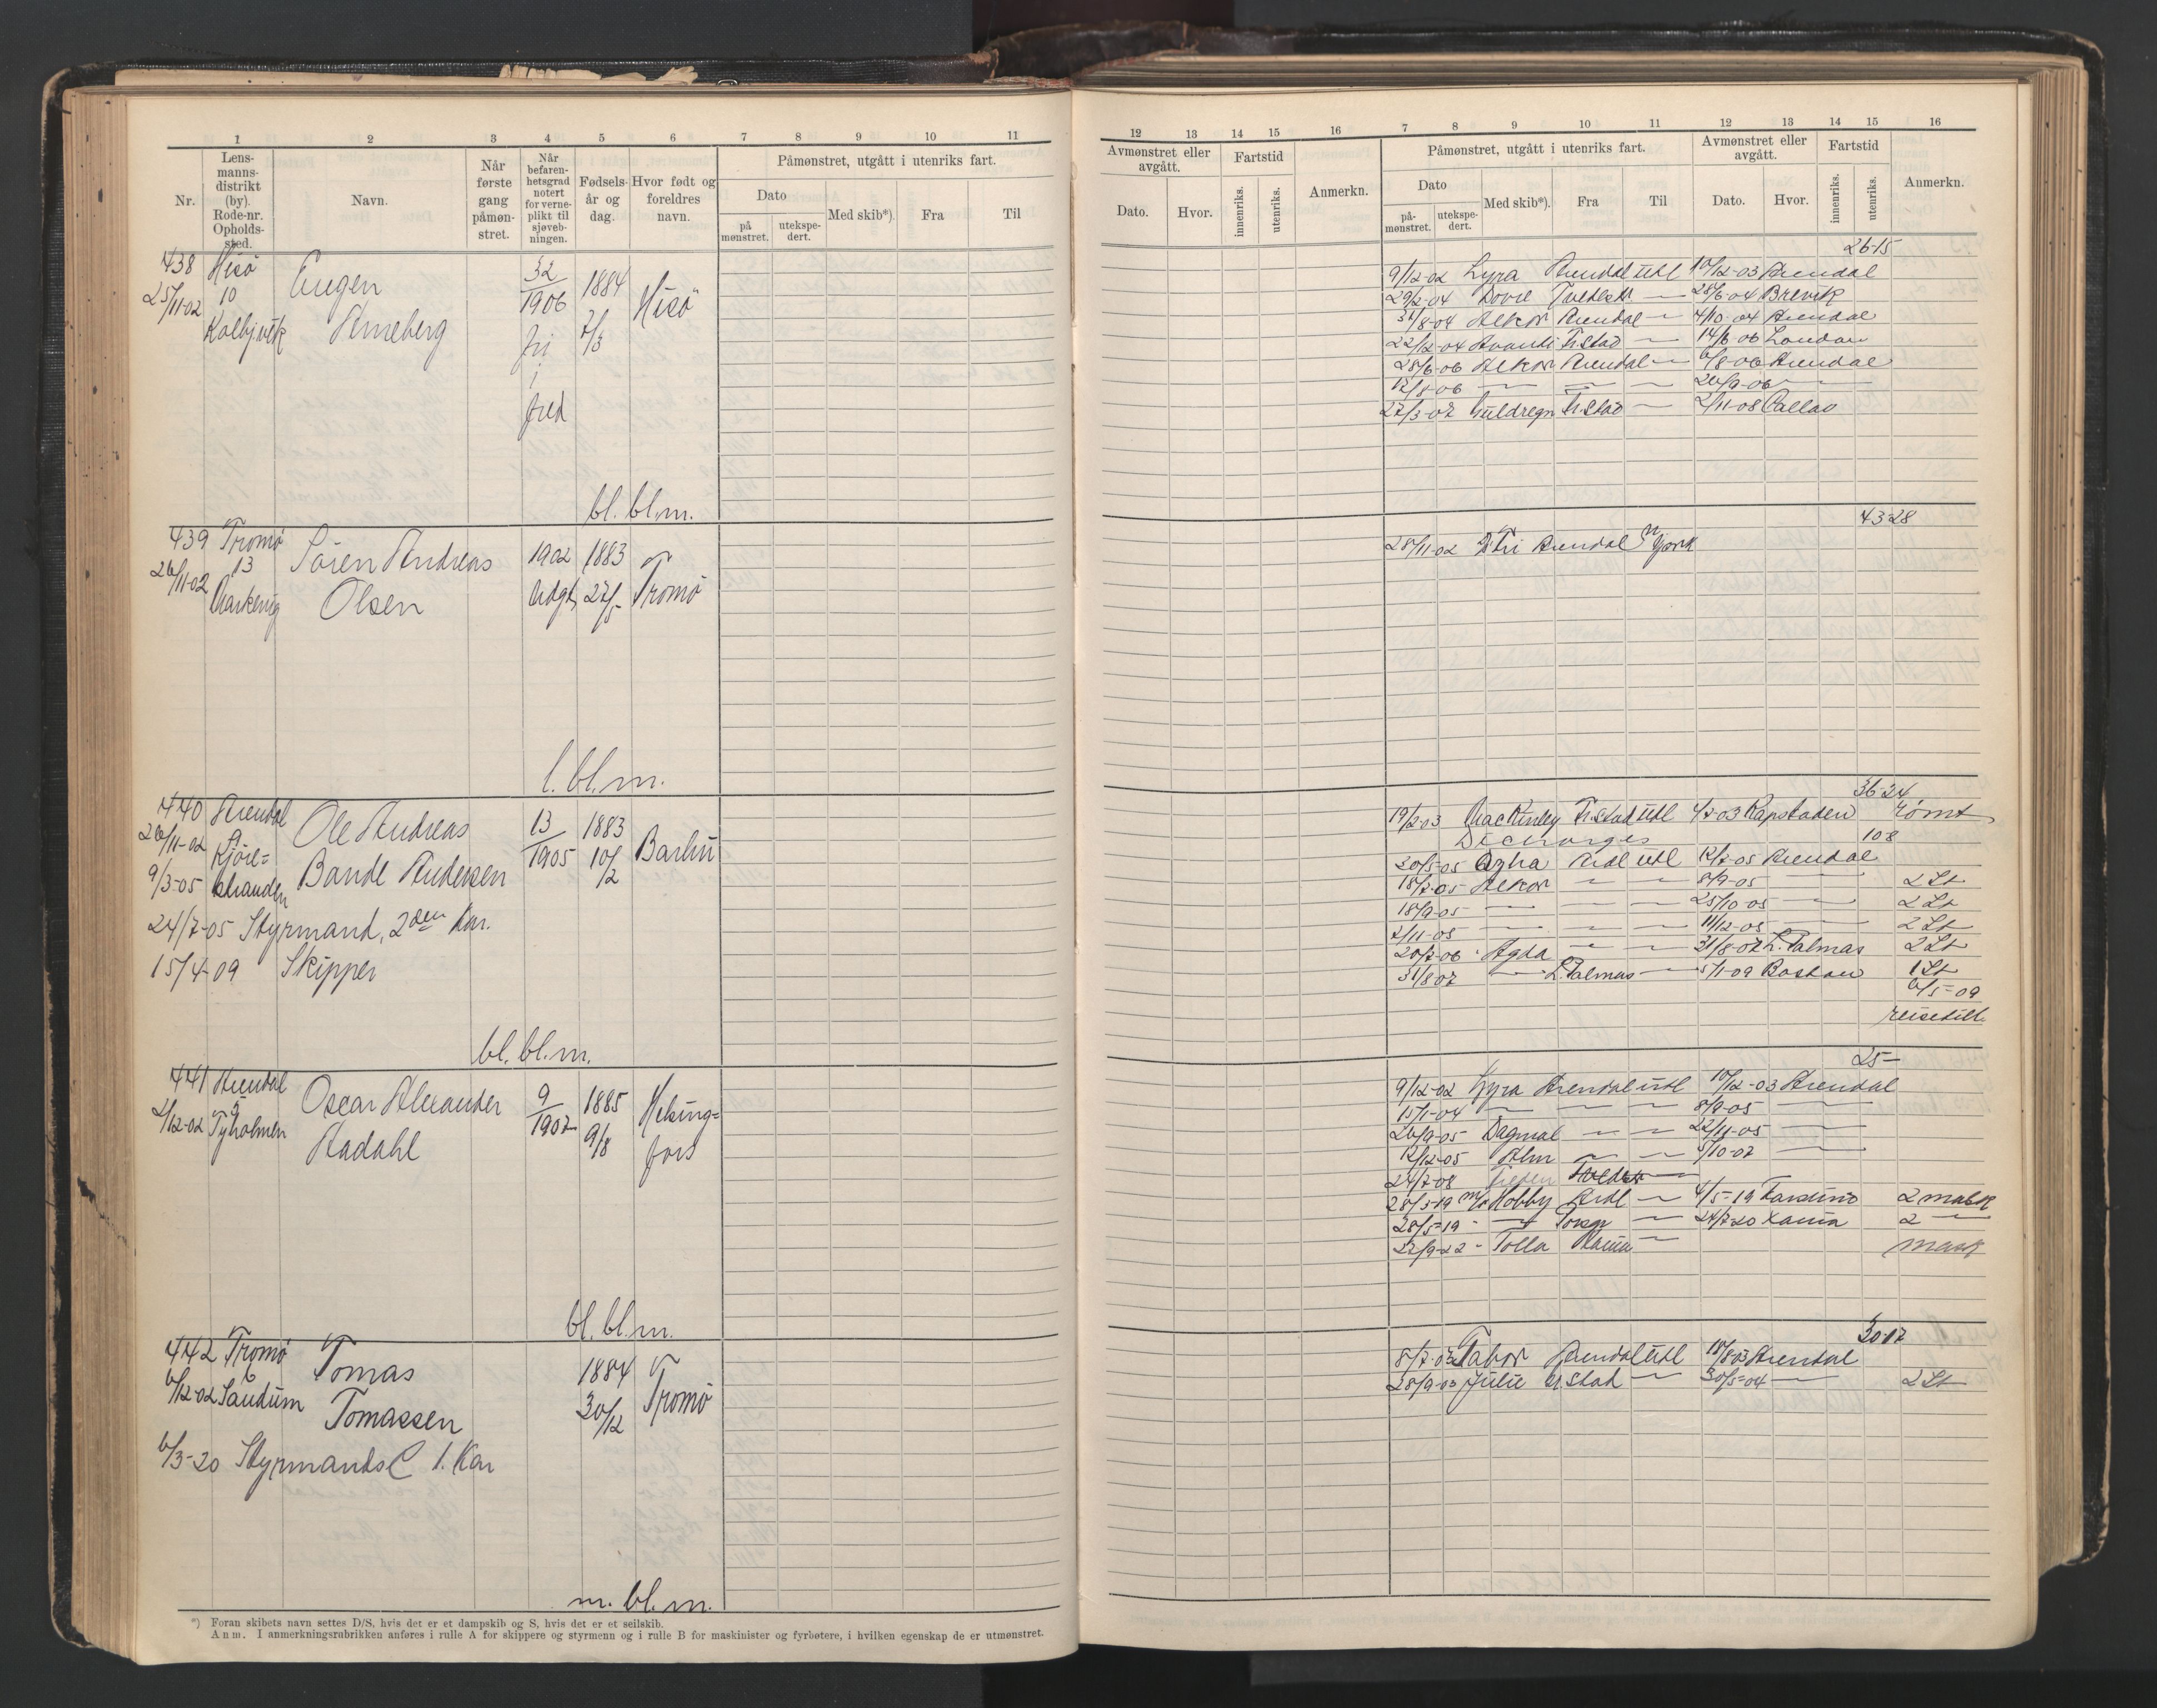 1 2 3 4 5 6 7 8 9 10 11
Nr.
Lens-
manns-
distrikt
(by).
Rode-nr.
Opholds-
sted.
Navn.
Når
første
gang
påmøn-
stret.
Når
befaren-
hetsgrad
notert
for verne-
plikt til
sjøveb-
ningen.
Fødsels-
år og
dag.
Hvor født og
foreldres
navn.
Påmønstret, utgått i utenriks fart.
Dato
på
mønstret.
utekspe-
dert.
Med skib*).
Fra
Til
438 Hisö Eugen 32 1884 Hisö
25/11-02 10 Anneberg 1906 7/3
Kolbjvik fri
i
fred
bl. bl.m.
439 Tromö Sören Andreas 1902 1883 Tromö
26/11-02 13 Olsen Udgt 27/5
l. bl.m.
440 Arendal Ole Andreas 13 1883 Barbu
26/11-02 9 Bande Andersen 1905 10/2
9/3-05 Kjöle=
stranden
24/7-05 Styrmand, 2den Kar.
15/4-09 Skipper
bl. bl.m.
441 Arendal Oscar Alexander 9 1885 Helsing=
2/12-02 Tyholmen 1907 9/8 fors
bl. bl.m.
442 Tromö Tomas 1884 Tromö
6/12-02 6 Sandum Tomassen 30/12
6/3-20 Styrmands C 1. Kar
m. bl. m.
*) Foran skibets navn settes D/S, hvis det er et dampskib og S, hvis det er et seilskib.
Anm. I anmerkningsrubrikken anføres i rulle A for skippere og styrmenn og i rulle B for maskinister og fyrbøtere, i hvilken egenskap de er utmønstret.
12 13 14 15 16 7 8 9 10 11 12 13 14 15 16
Avmønstret eller
avgått.
Dato.
Hvor.
Fartstid
innenriks.
utenriks.
Anmerkn.
Påmønstret, utgått i utenriks fart.
Dato
på-
mønstret.
utekspe-
dert.
Med skib*).
Fra
Til
Avmønstret eller
avgått.
Dato.
Hvor.
Fartstid
innenriks.
utenriks.
Anmerkn.
26-15
9/12-02 Lyra Arendal utl 10/12-03 Arendal
29/2-04 Dovre 28/6-04 Brevik
31/8-04 Alkor Arendal — 4/10-04 Arendal
22/12-04 Avanti Frstad — 14/6-06 London
28/6-06 Alkor Arendal — 6/8-06 Arendal
17/8-06 — — — 26/9-06 —
27/3-07 Guldregn Frstad — 2/11-08 Callao
43-28
28/11-02 Fri Arendal N York
36-24
19/2-03 MacKinley Frstad utl 4/7-03 Kapstaden römt
108
30/5-05 Agda Ardl utl 12/7-05 Arendal
18/7-05 Alkor — — 8/9-05 — 2 St
18/9-05 — — — 25/10-05 — 2 St
2/11-05 — — — 11/12-05 — 2 St
20/7-06 Agda — — 31/8-07 L. Palmas 2 St
31/8 07 — L. Palmas — 5/1-09 Boston 1 St
6/5-09
25-
9/12-02 Lyra Arendal utl 10/12-03 Arendal
15/1-04 — — — 8/9-05 —
26/9-05 Dagmar — — 22/11-05 —
12/12-05 Alm — — 5/10-07 —
24/7-08
28/3-19 m/s Hobby Ardl — 4/5-19 2 mask
28/5-19 — — 24/7-20 2 —
22/9-22 - Tolla — mask
30-17
8/7-03 Tabor Arendal utl 18/8-03 Arendal
28/9-03 Julie Frstad — 30/5-04 — 2 St